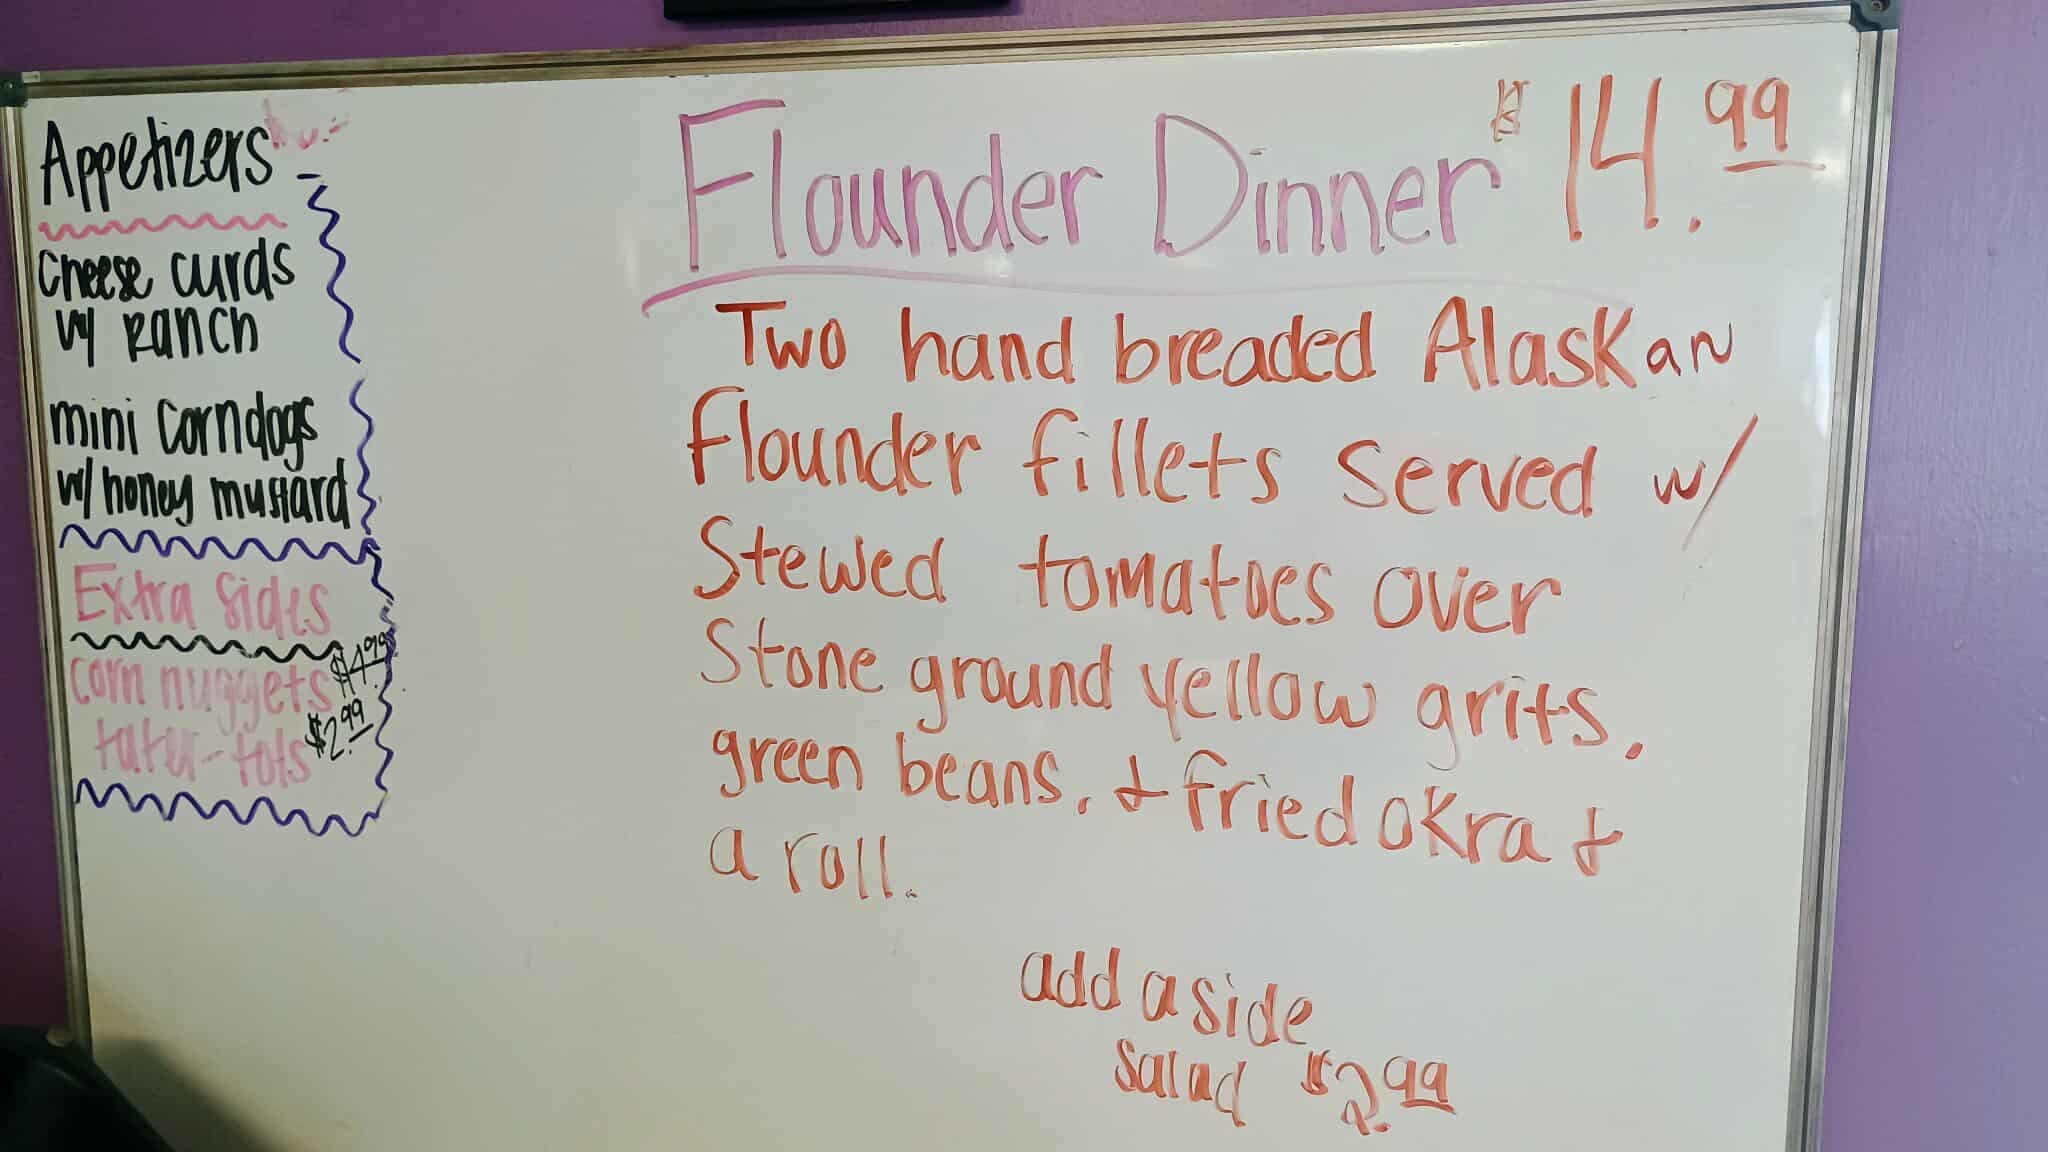 Appetizers
cheese curds
w/ Ranch
mini corndogs
w/ honey mustard
Extra Sides
corn nuggets $4.99
tater-tots $2.99
Flounder Dinner $14.99
Two hand breaded Alaskan
flounder fillets served w/
Stewed tomatoes over
Stone ground yellow grits,
green beans, & fried okra &
a roll.
add a side
salad $2.99